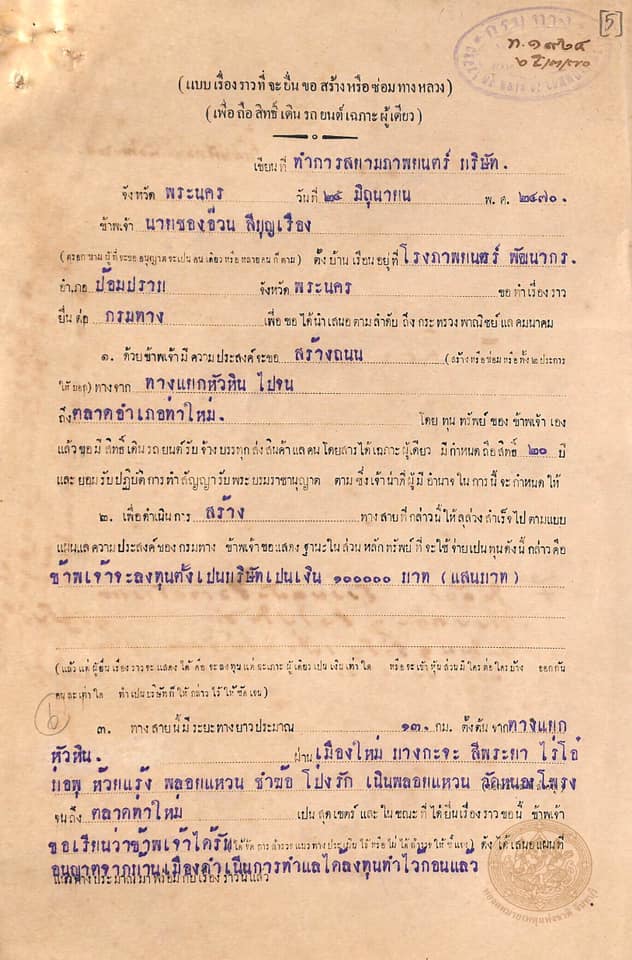 [5]
กรมทาง
ท.๑๙๒๔
(แบบเรื่องราวที่จะยื่นขอสร้างหรือซ่อมทางหลวง)
(เพื่อถือสิทธิ์เดินรถยนต์เฉภาะผู้เดียว)
เขียนที่ ทำการสยามภาพยนตร์ บริษัท.
จังหวัด พระนคร วันที่ ๒๕ มิถุนายน พ.ศ. ๒๔๗๐.
ข้าพเจ้า นายซองอ๊วน สีบุญเรือง
(กรอกนามผู้ที่จะขออนุญาตจะเป็นคนเดียวหรือหลายคนก็ตาม) ตั้งบ้านเรือนอยู่ที่ โรงภาพยนตร์ พัฒนากร.
อำเภอ ป้อมปราบ จังหวัด พระนคร ขอทำเรื่องราว
ยื่นต่อ กรมทาง เพื่อขอได้นำเสนอตามลำดับ ถึงกระทรวงพาณิชย์แลคมนาคม
๑. ด้วยข้าพเจ้ามีความประสงค์จะขอ สร้างถนน (สร้างหรือซ่อมหรือทั้ง ๒ ประการ
ให้บอก) ทางจาก ทางแยกหัวหิน ไปจน
ถึง ตลาดอำเภอท่าใหม่. โดยทุนทรัพย์ของข้าพเจ้าเอง
แล้วขอมีสิทธิ์เดินรถยนต์รับจ้างบรรทุกส่งสินค้าแลคนโดยสารได้เฉภาะผู้เดียว มีกำหนดถือสิทธิ์ ๒๐ ปี
และยอมรับปฏิบัติการทำสัญญารับพระบรมราชานุญาต ตามซึ่งเจ้าน่าที่ผู้มีอำนาจในการนี้จะกำหนดให้
๒. เพื่อดำเนินการ สร้าง ทางสายที่กล่าวนี้ให้ลุล่วงสำเร็จไปตามแบบ
แผนแลความประสงค์ของกรมทาง ข้าพเจ้าขอแสดงฐานะในส่วนหลักทรัพย์ที่จะใช้จ่ายเป็นทุนดังนี้กล่าวคือ
ข้าพเจ้าจะลงทุนตั้งเปนบริษัทเปนเงิน ๑๐๐๐๐๐ บาท (แสนบาท)
(แล้วแต่ผู้ยื่นเรื่องราวจะแสดงได้ คือจะลงทุนแต่จะเภาะผู้เดียวเป็นเงินเท่าใด หรือจะเข้าหุ้นส่วนมีใครต่อใครบ้าง ออกกัน
คนละเท่าใด ทำเป็นบริษัทก็ให้กล่าวไว้ให้ชัดเจน)
๓. ทางสายนี้มีระยะทางยาวประมาณ ๑๓. กม. ตั้งต้นจาก ทางแยก
หัวหิน. ผ่าน เมืองใหม่ บางกะจะ สีพระยา ไร่โอ๋
บ่อพุ ห้วยแร้ง พลอยแหวน ชำฆ้อ โป่งรัก เนินพลอยแหวน วัดหนองโพรง
จนถึง ตลาดท่าใหม่ เป็นสุดเขตร์ และในขณะที่ได้ยื่นเรื่องราวขอนี้ ข้าพเจ้า
ขอเรียนว่าข้าพเจ้าได้รับ ดังได้เสนอแผนที่
อนุญาตจากบ้านเมืองดำเนินการทำแลได้ลงทุนทำไว้ก่อนแล้ว
๖
หอจดหมายเหตุแห่งชาติ จันทบุรี